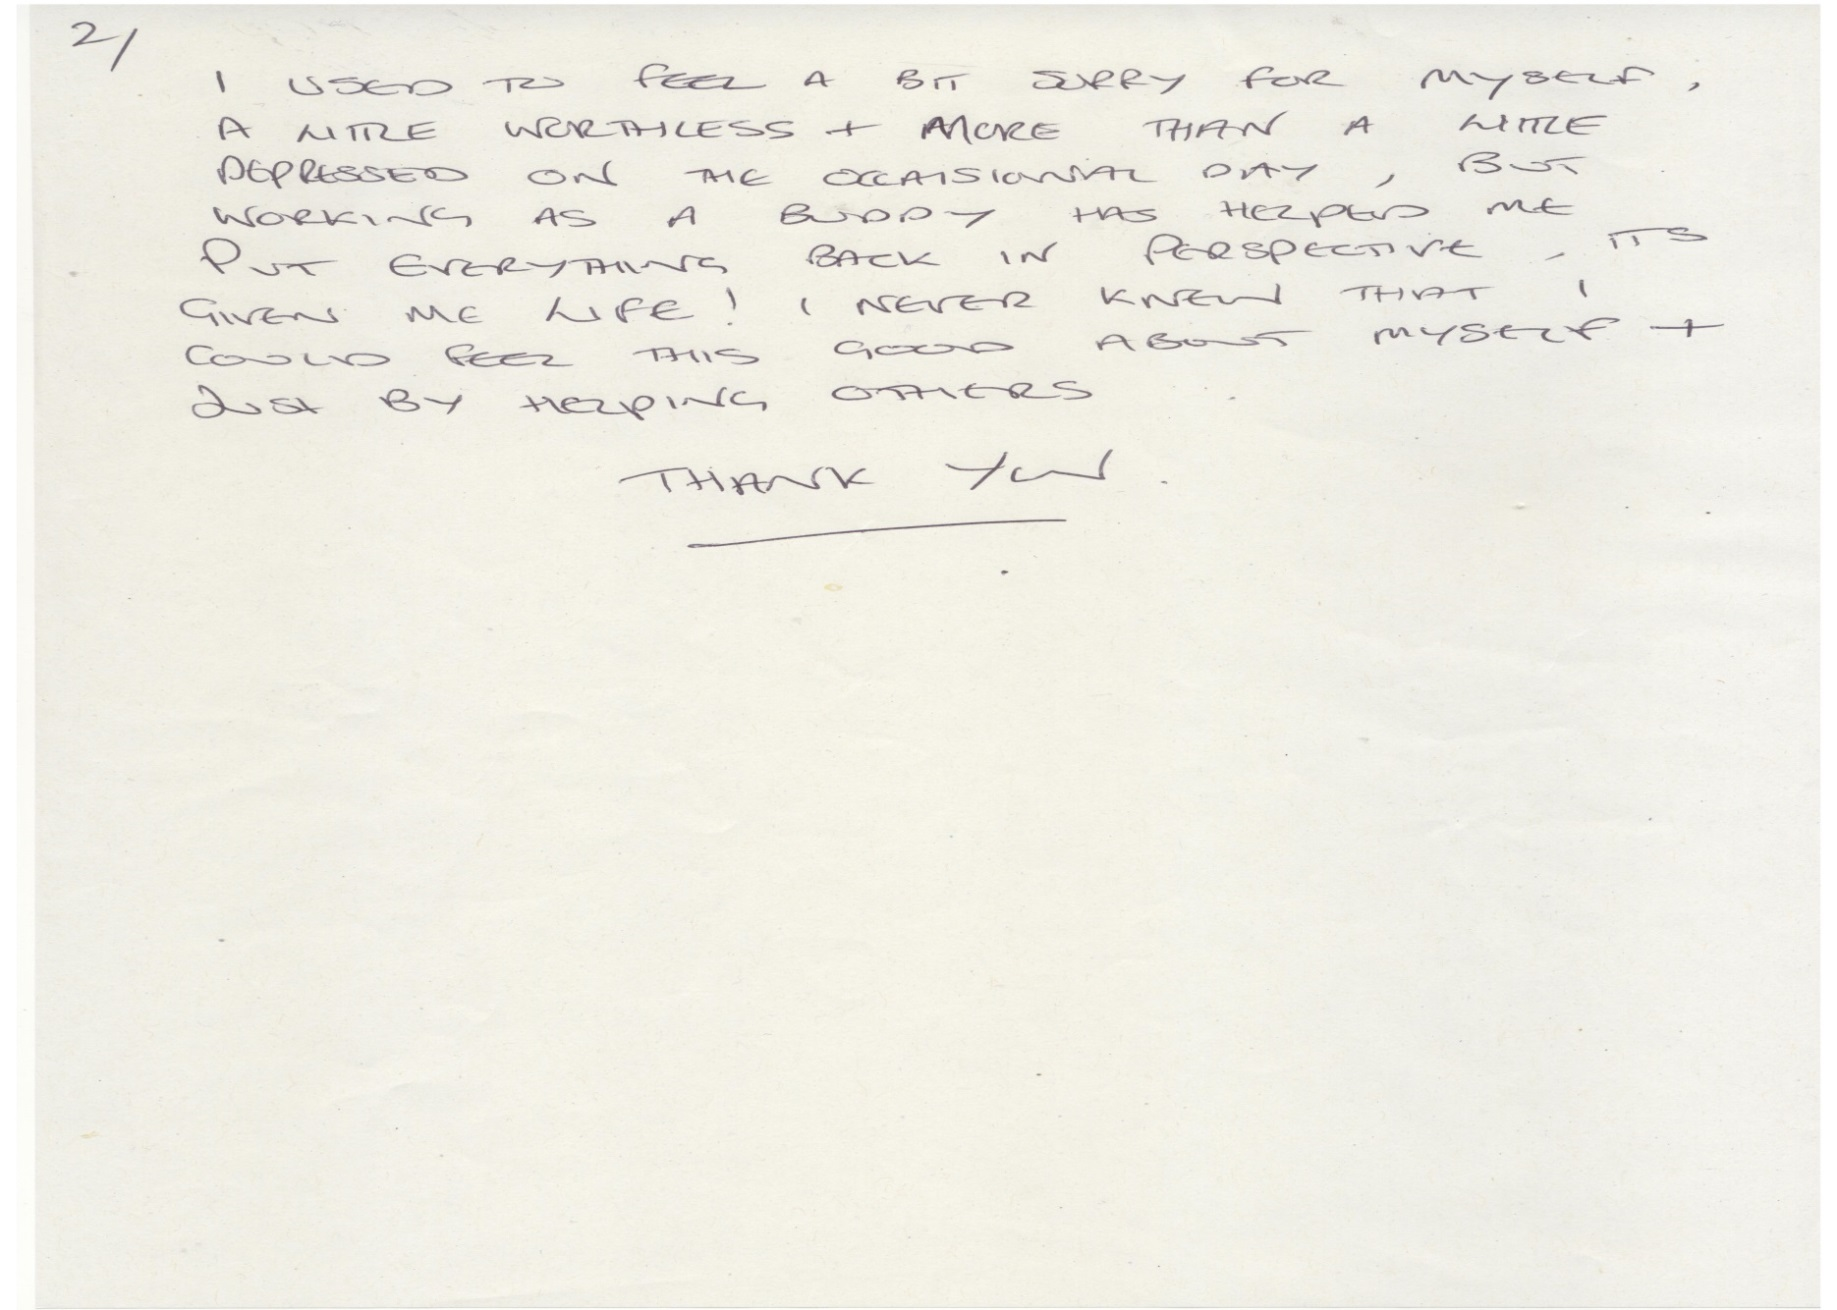 2/
I USED TO FEEL A BIT SORRY FOR MYSELF,
A LITTLE WORTHLESS + MORE THAN A LITTLE
DEPRESSED ON THE OCCAISIONAL DAY, BUT
WORKING AS A BUDDY HAS HELPED ME
PUT EVERYTHING BACK IN PERSPECTIVE, ITS
GIVEN ME LIFE! I NEVER KNEW THAT I
COULD FEEL THIS GOOD ABOUT MYSELF +
JUST BY HELPING OTHERS
THANK YOU.